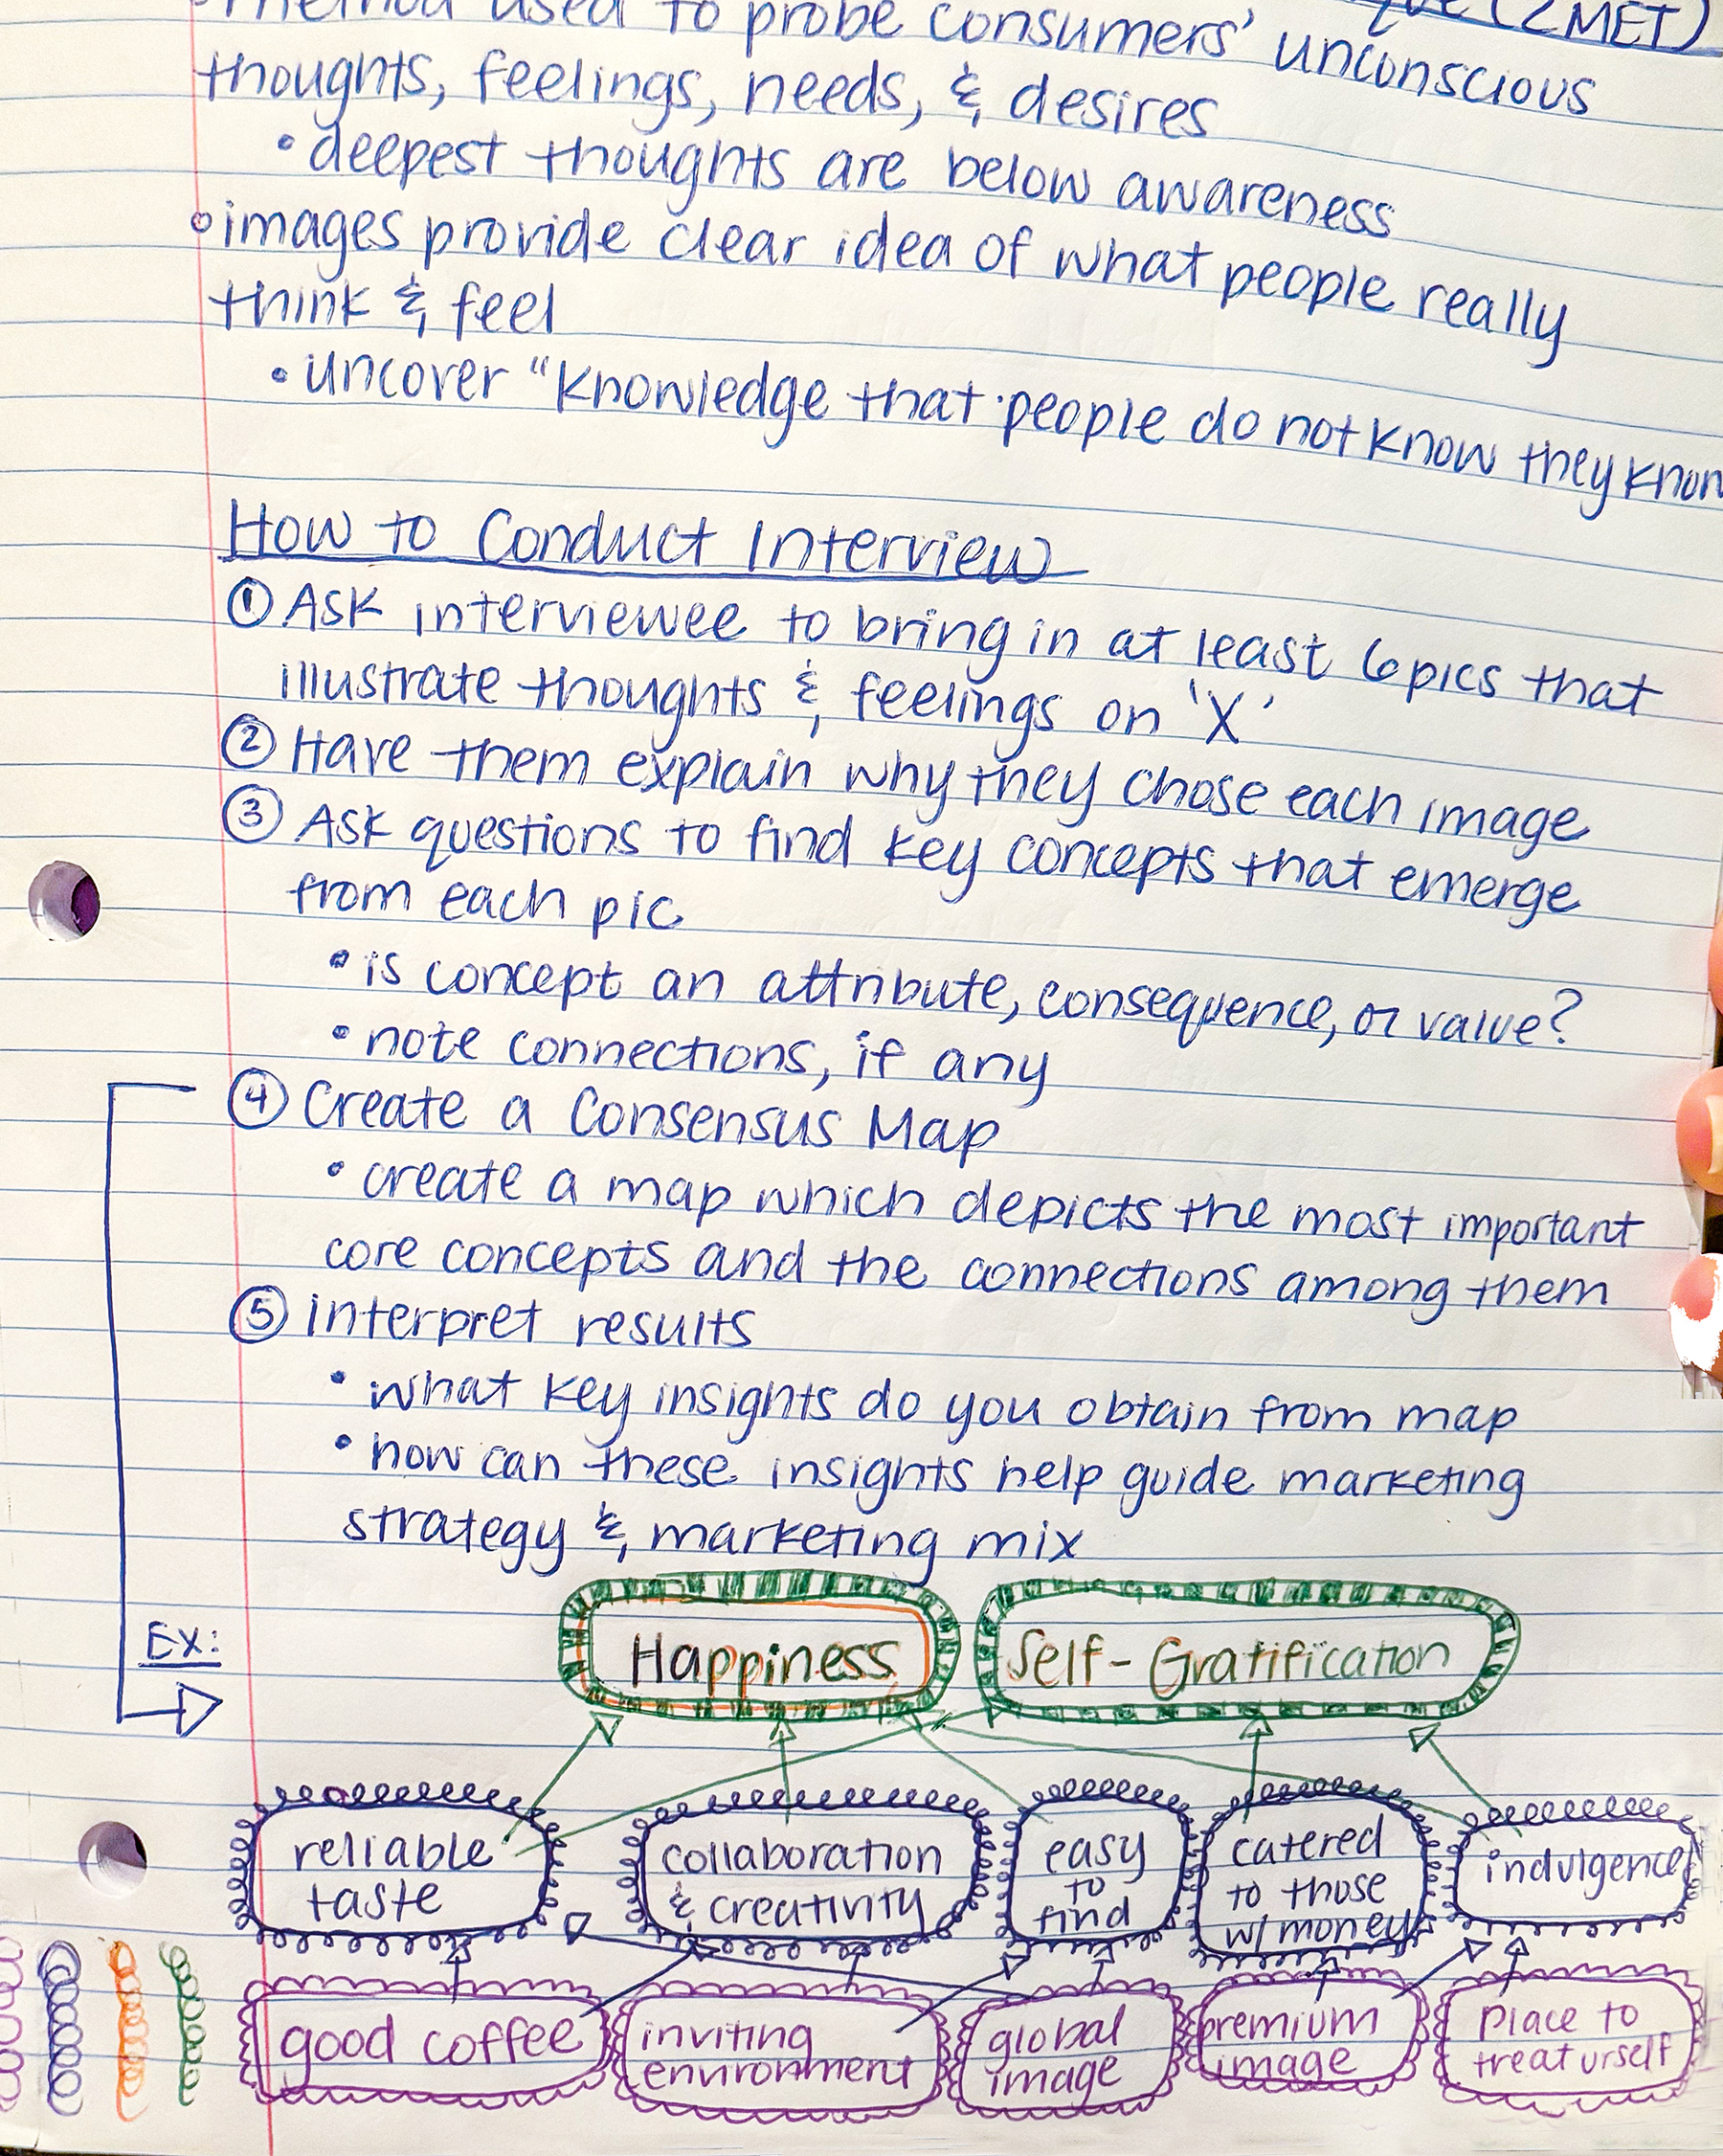 (ZMET)
method used to probe consumers' unconscious
thoughts, feelings, needs, & desires
• deepest thoughts are below awareness
◦ images provide clear idea of what people really
think & feel
• uncover "knowledge that people do not know they know
How to Conduct Interview
① Ask interviewee to bring in at least 6 pics that
illustrate thoughts & feelings on 'X'
② Have them explain why they chose each image
③ Ask questions to find key concepts that emerge
from each pic
• is concept an attribute, consequence, or value?
• note connections, if any
④ Create a Consensus Map
• create a map which depicts the most important
core concepts and the connections among them
⑤ Interpret results
• what key insights do you obtain from map
• how can these insights help guide marketing
strategy & marketing mix
Ex:
Happiness
Self-Gratification
reliable
taste
collaboration
& creativity
easy
to
find
catered
to those
w/ money
indulgence
good coffee
inviting
environment
global
image
premium
image
place to
treat urself